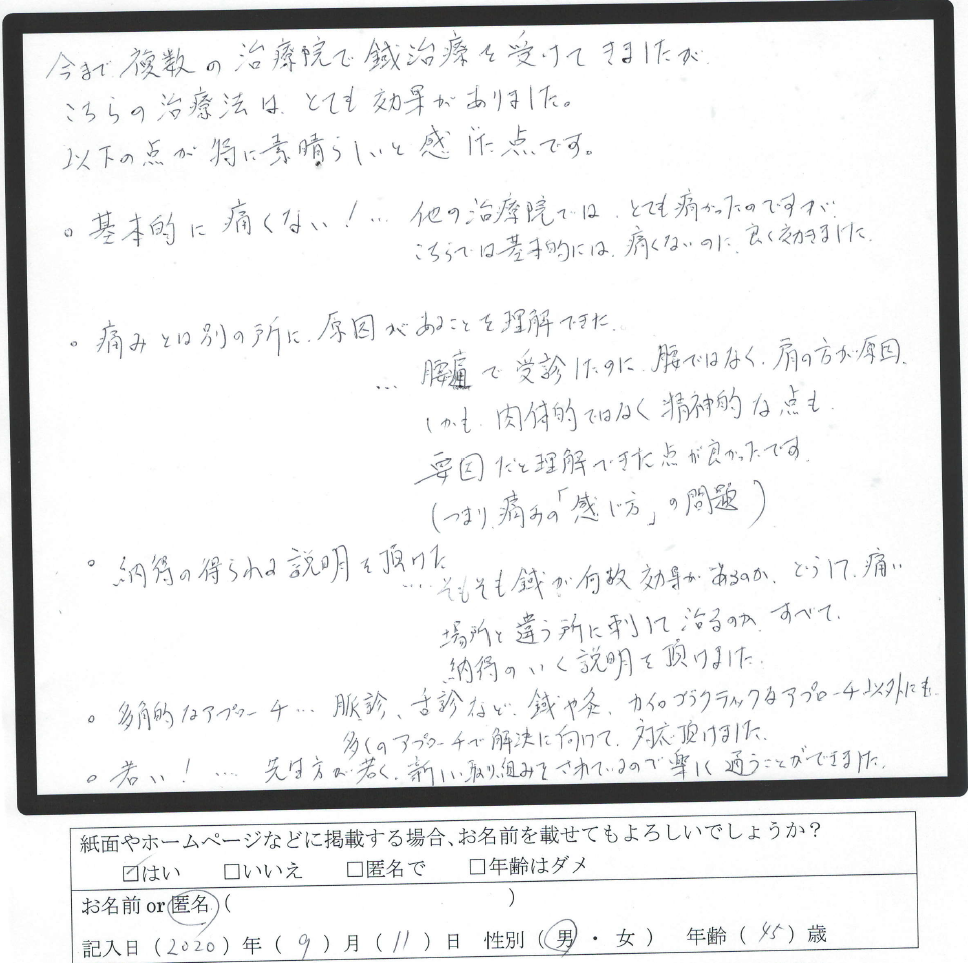 今まで複数の治療院で鍼治療を受けてきましたが、
こちらの治療法は、とても効果がありました。
以下の点が特に素晴らしいと感じた点です。
。基本的に痛くない！… 他の治療院では、とても痛かったのですが、
こちらでは基本的には、痛くないのに、良く効きました。
。痛みとは別の所に、原因があることを理解できた。
… 腰痛で受診したのに、腰ではなく、肩の方が原因、
しかも、肉体的ではなく精神的な点も、
要因だと理解できた点が良かったです。
(つまり、痛みの「感じ方」の問題)
。納得の得られる説明を頂けた
… そもそも鍼が何故効果があるのか、どうして、痛い
場所と違う所に刺して治るのか、すべて、
納得のいく説明を頂けました。
。多角的なアプローチ… 脈診、舌診など、鍼や灸、カイロプラクティックなアプローチ以外にも、
多くのアプローチで解決に向けて、対応頂けました。
。若い！… 先生方が若く、新しい取り組みをされているので楽しく通うことができました。
紙面やホームページなどに掲載する場合、お名前を載せてもよろしいでしょうか？
☑はい □いいえ □匿名で □年齢はダメ
お名前 or 匿名 ( )
記入日 ( 2020 ) 年 ( 9 ) 月 ( 11 ) 日 性別 ( 男 ・ 女 ) 年齢 ( 45 ) 歳